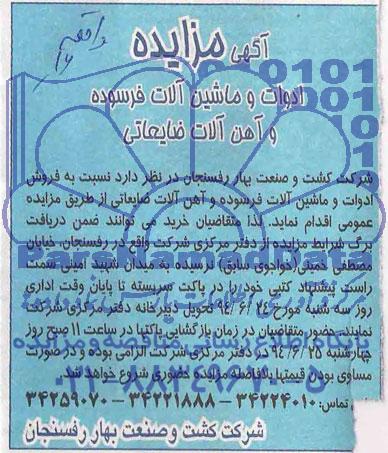 آگهی مزایده
ادوات و ماشین آلات فرسوده
و آهن آلات ضایعاتی
شرکت کشت و صنعت بهار رفسنجان در نظر دارد نسبت به فروش
ادوات و ماشین آلات فرسوده و آهن آلات ضایعاتی از طریق مزایده
عمومی اقدام نماید. لذا متقاضیان خرید می توانند ضمن دریافت
برگ شرایط مزایده از دفتر مرکزی شرکت واقع در رفسنجان، خیابان
مصطفی خمینی(خواجوی سابق) نرسیده به میدان شهید امینی سمت
راست پیشنهاد کتبی خود را در پاکت سربسته تا پایان وقت اداری
روز سه شنبه مورخ ۹۴/۶/۲۴ تحویل دبیرخانه دفتر مرکزی شرکت
نمایند. حضور متقاضیان در زمان بازگشایی پاکتها در ساعت ۱۱ صبح روز
چهارشنبه ۹۴/۶/۲۵ در دفتر مرکزی شرکت الزامی بوده و در صورت
مساوی بودن قیمتها بلافاصله مزایده حضوری شروع خواهد شد.
تماس: ۳۴۲۲۴۰۱۰ - ۳۴۲۲۱۸۸۸ - ۳۴۲۵۹۰۷۰
شرکت کشت و صنعت بهار رفسنجان
ParsNamadData
پایگاه اطلاع رسانی مناقصه و مزایده